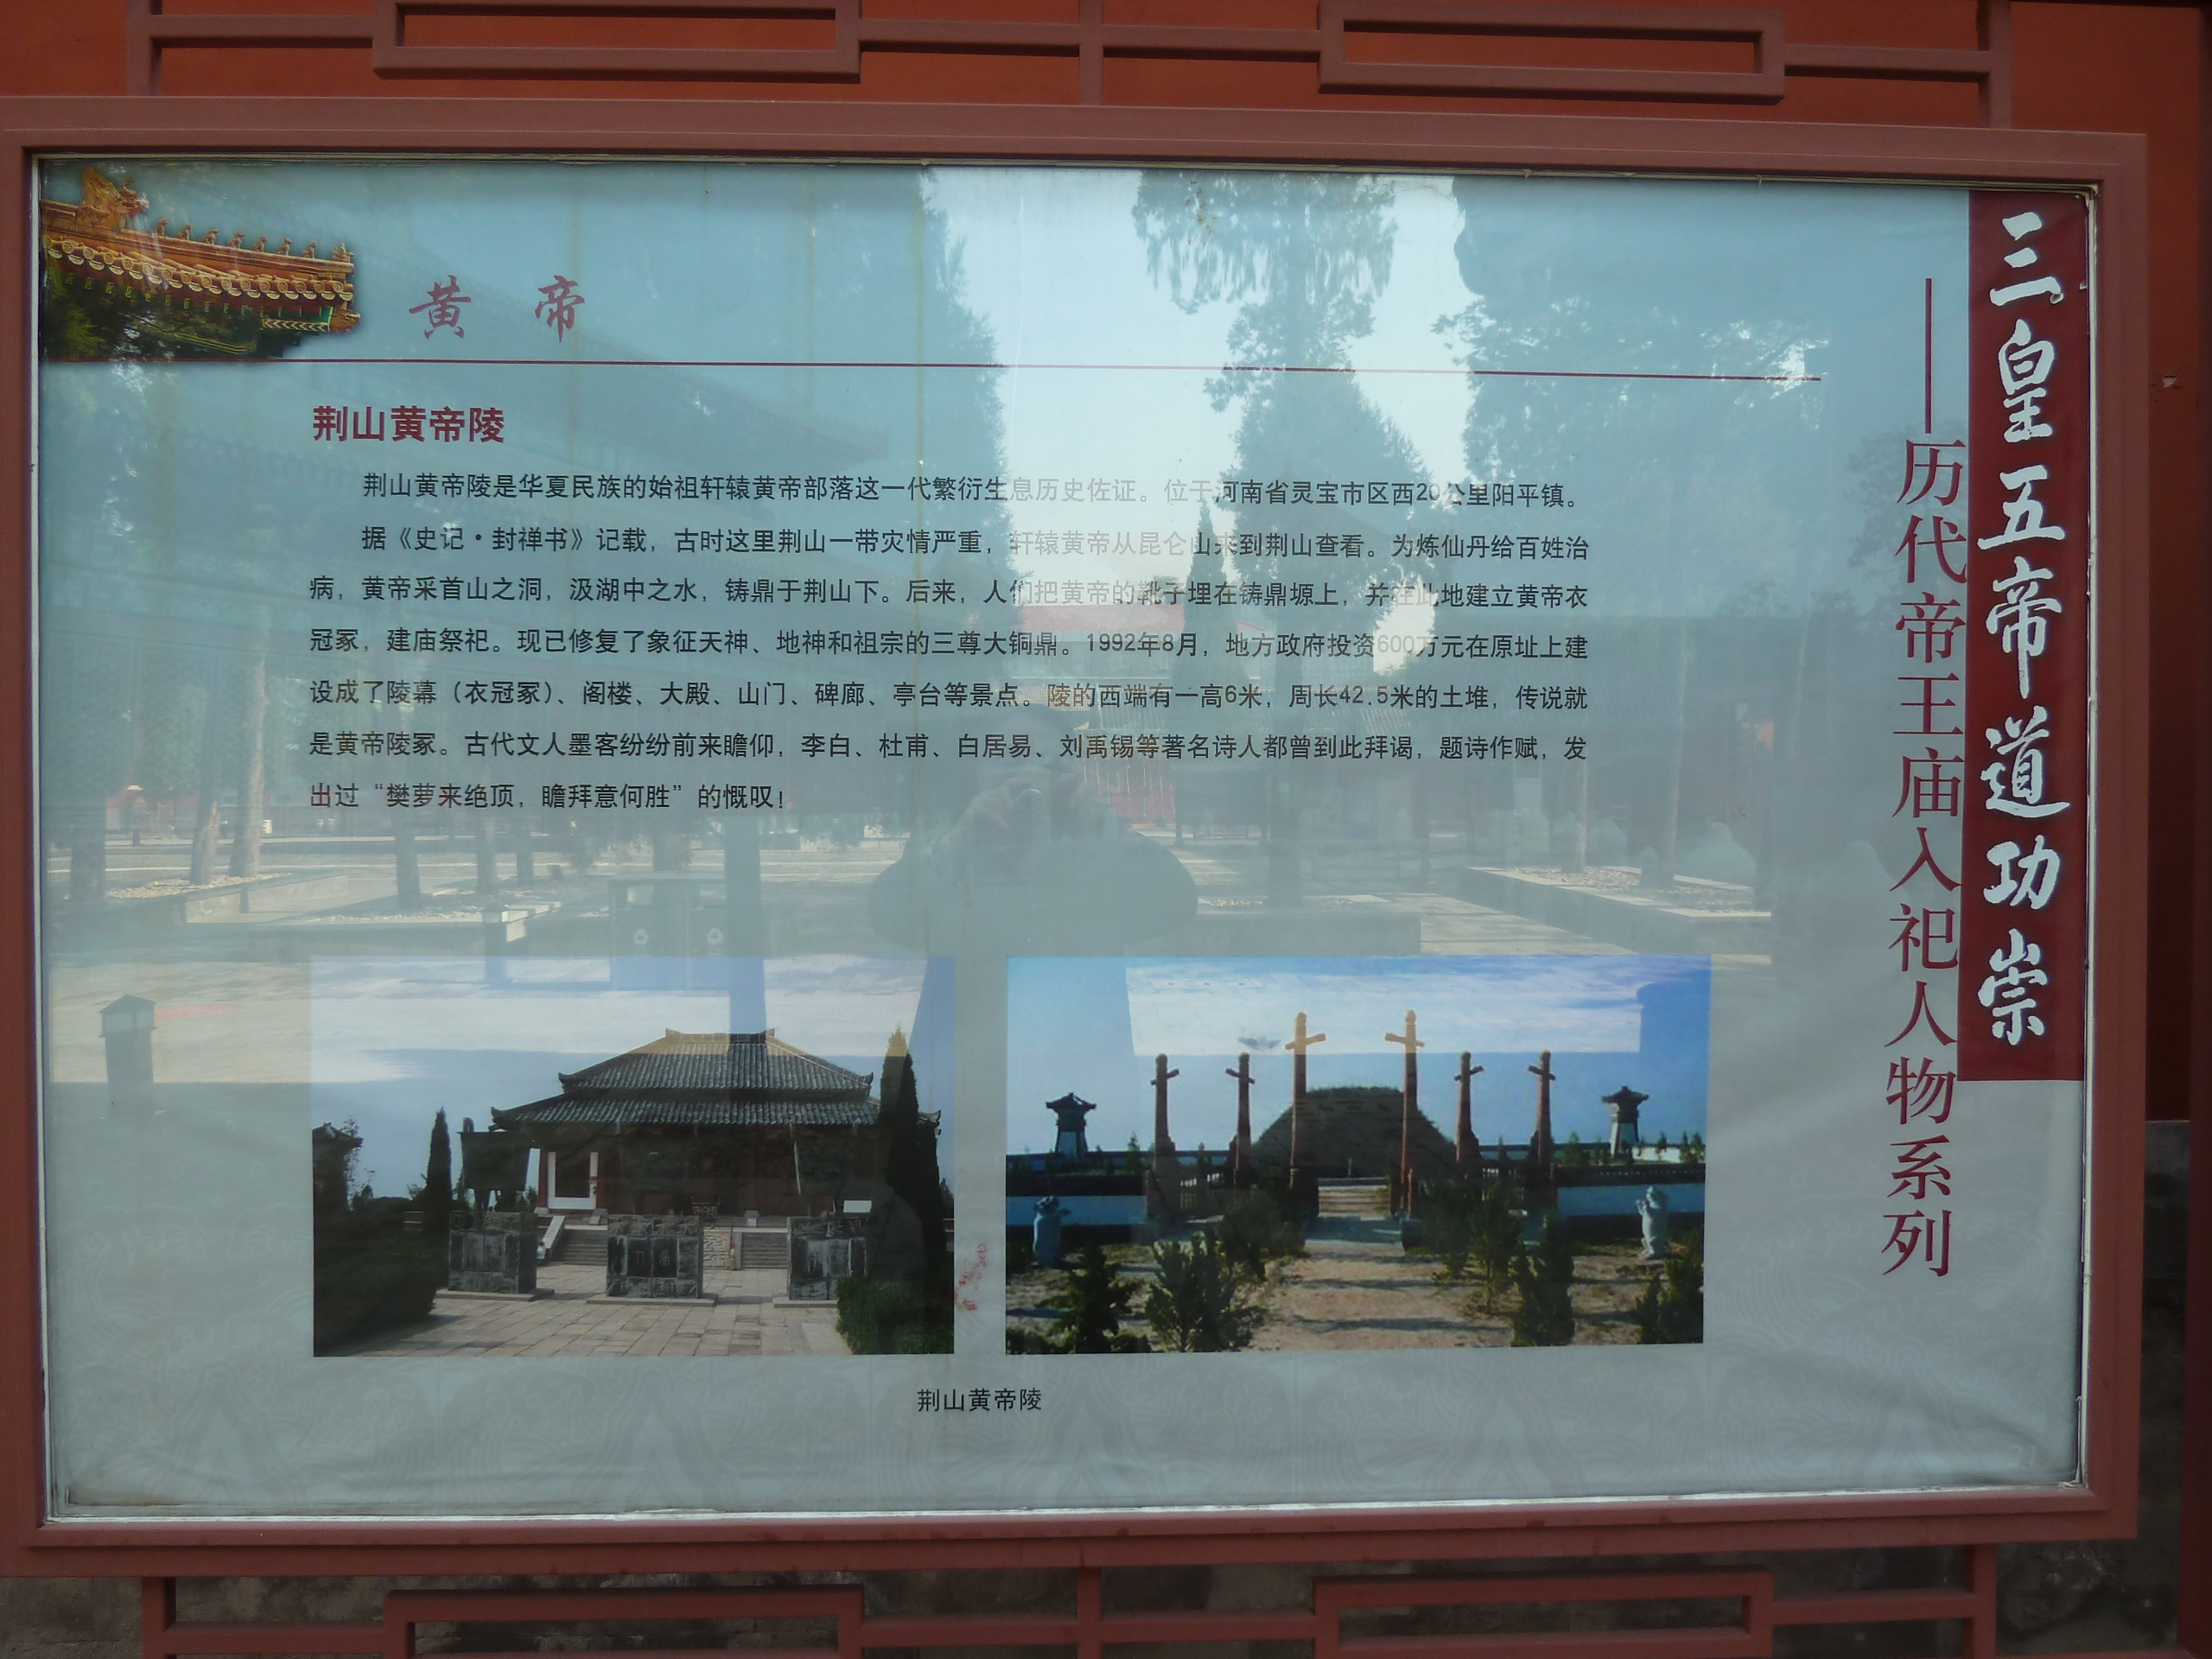 三皇五帝道功崇
——历代帝王庙入祀人物系列
黄 帝
荆山黄帝陵
荆山黄帝陵是华夏民族的始祖轩辕黄帝部落这一代繁衍生息历史佐证。位于河南省灵宝市区西20公里阳平镇。
据《史记·封禅书》记载，古时这里荆山一带灾情严重，轩辕黄帝从昆仑山来到荆山查看。为炼仙丹给百姓治
病，黄帝采首山之洞，汲湖中之水，铸鼎于荆山下。后来，人们把黄帝的靴子埋在铸鼎塬上，并在此地建立黄帝衣
冠冢，建庙祭祀。现已修复了象征天神、地神和祖宗的三尊大铜鼎。1992年8月，地方政府投资600万元在原址上建
设成了陵幕（衣冠冢）、阁楼、大殿、山门、碑廊、亭台等景点。陵的西端有一高6米，周长42.5米的土堆，传说就
是黄帝陵冢。古代文人墨客纷纷前来瞻仰，李白、杜甫、白居易、刘禹锡等著名诗人都曾到此拜谒，题诗作赋，发
出过“樊萝来绝顶，瞻拜意何胜”的慨叹！
荆山黄帝陵